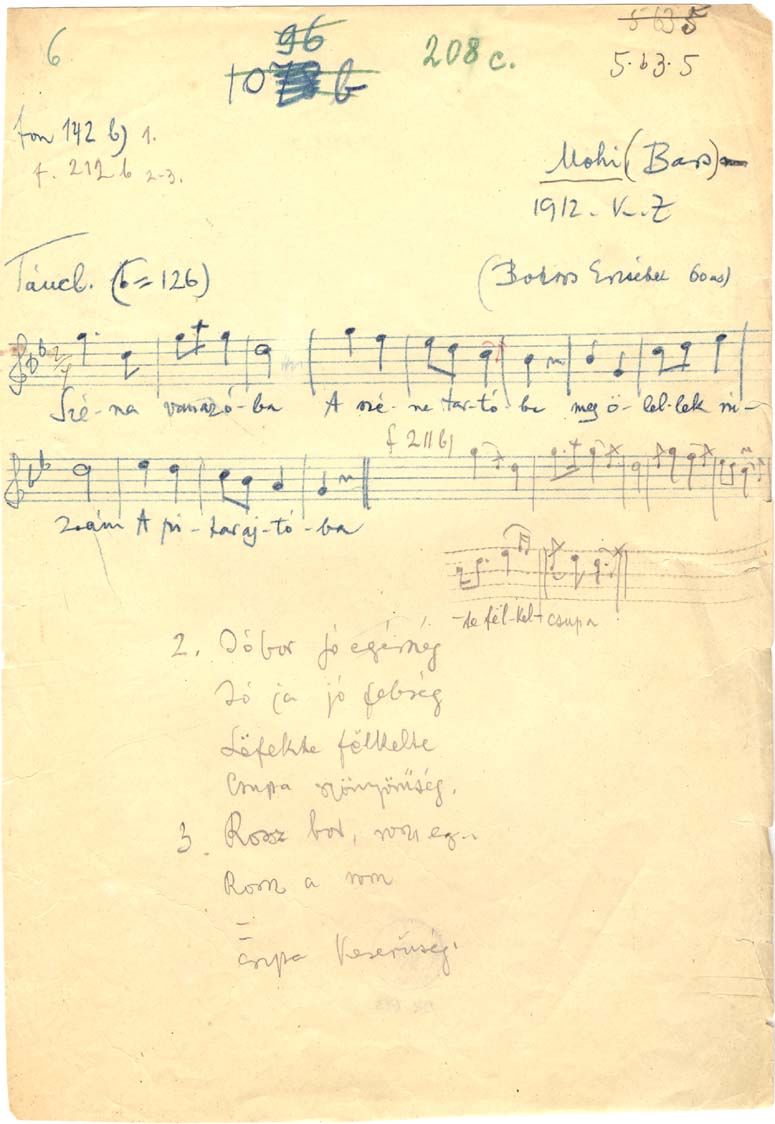 6
96
208 c.
5 63 5
5·b3·5
fon 142 b) 1.
f. 212 b 2-3.
Mohi (Bars)
1912. V. Z
Táncl. (= 126)
60as)
2/4
Szé-na vana zó-ba A szé-ne tar-tó-ba meg ö-lel-lek ró-
f 211 b)
zsám A pi-tar aj-tó-ba
-te fél-kel- csupa
2. Jó bor jó egésség
Jó ja jó febség
Lëfekte fëlkelte
Csupa gyönyörűség.
3. Rossz bor, rossz eg..
Rossz a rossz
csupa keserűség.